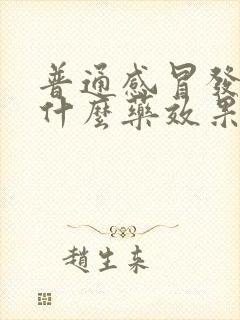 普通感冒發
什麼藥效果
趙生来